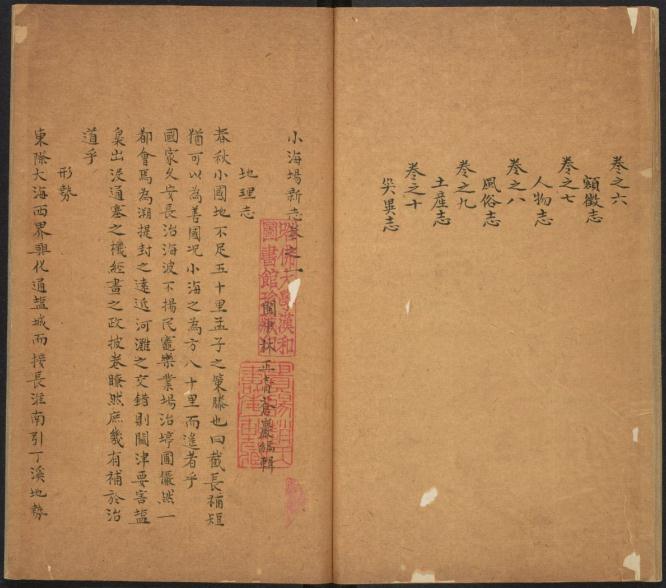 卷之六
額徵志
卷之七
人物志
卷之八
風俗志
卷之九
土產志
卷之十
災異志
小海場新志卷之一
閩中林正青蒼巖編輯
地理志
春秋小國地不足五十里孟子之策滕也曰截長補短
猶可以為善國況小海之為方八十里而進者乎
國家久安長治海波不揚民竈樂業場治埻圃儼然一
都會焉為溯提封之遠近河灘之交錯則關津要害鹽
梟出沒通塞之機經畫之政披卷瞭然庶幾有補於治
道乎
形勢
東際大海西界興化通鹽城而接長淮南引丁溪地勢
哈佛大學漢和
圖書館珍藏